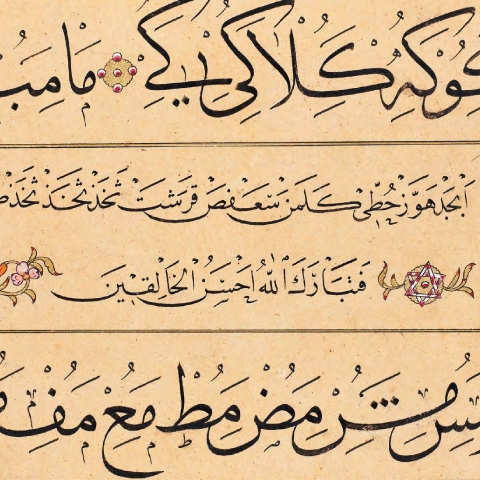 كو كه كلا كي يے ما مب
ابجد هوز حطي كلمن سعفص قرشت ثخذ ثخذ ثخذ
فتبارك الله احسن الخالقين
مس مش مص مط مع مف